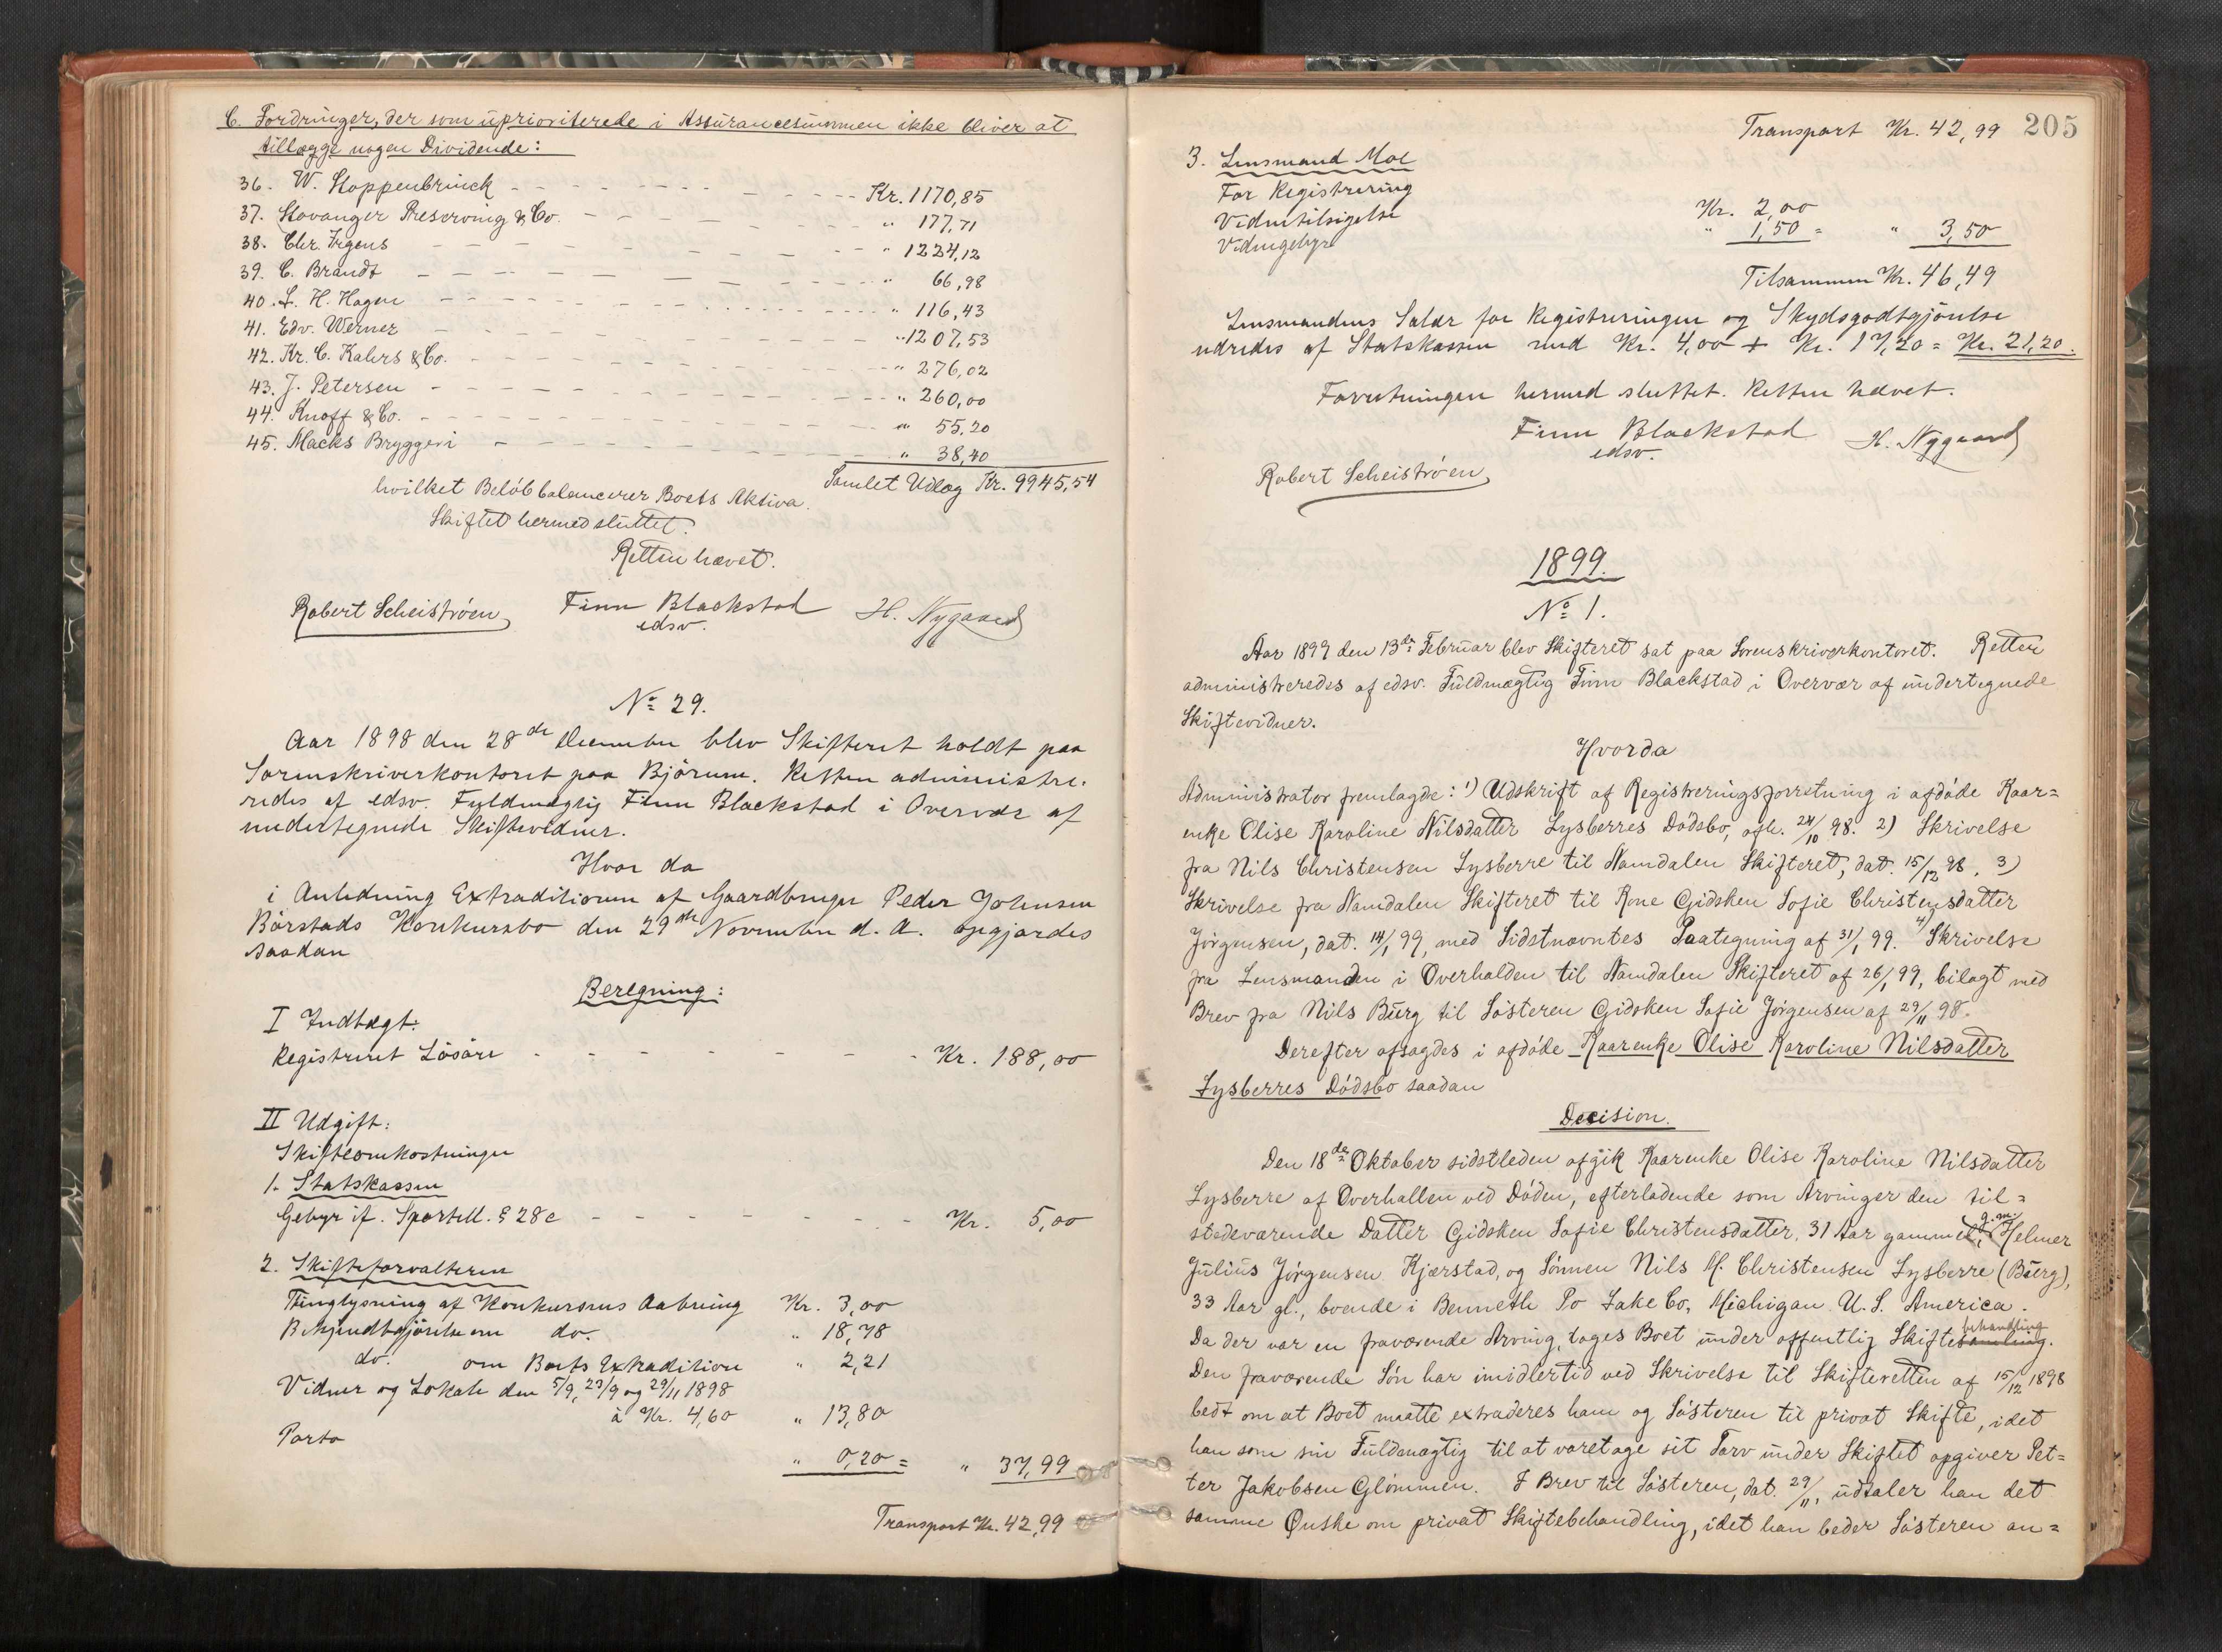 C. Fordringer, der som uprioriterede i Assurancesummen ikke bliver at
tillægge nogen Dividende:
36. W. Stoppenbrinck - - - Kr. 1170,85
37. Stavanger Preserving & Co. - - - " 177,71
38. Chr. Irgens - - - " 1224,12
39. C. Brandt - - - " 66,98
40. L. H. Hagen - - - " 116,43
41. Edv. Werner - - - " 1207,53
42. Kr. C. Kahrs & Co. - - - " 276,02
43. J. Petersen - - - " 260,00
44. Knoff & Co. - - - " 55,20
45. Macks Bryggeri - - - " 38,40
Samlet Udlæg Kr. 9945,54
hvilket Beløb balancerer Boets Aktiva.
Skiftet hermed sluttet.
Retten hævet.
Robert Scheistrøen Finn Blackstad H. Nygaard
edsv.
No 29.
Aar 1898 den 28de December blev Skifteret holdt paa
Sorenskriverkontoret paa Bjørum. Retten administre-
redes af edsv. Fuldmægtig Finn Blackstad i Overvær af
undertegnede Skiftevidner.
Hvor da
i Anledning Extraditionen af Gaardbruger Peder Johnsen
Børstads Konkursbo den 29de November d. A. opgjordes
saadan
Beregning:
I Indtægt:
Registreret Løsøre - - - Kr. 188,00
II Udgift:
Skifteomkostninger
1. Statskassen
Gebyr if. Sportell. § 28 c - - - Kr. 5,00
2. Skifteforvalteren
Thinglysning af Konkursens Aabning Kr. 3,00
Bekjendtgjørelse om do. " 18,78
do. om Boets Extradition " 2,21
Vidner og Lokale den 5/9, 23/9 og 29/11 1898
à Kr. 4,60 " 13,80
Porto
" 0,20 = " 37,99
Transport Kr. 42,99
Transport Kr. 42,99 205
3. Lensmand Moe
For Registrering
Vidnetilsigelse Kr. 2,00
Vidnegebyr " 1,50 = " 3,50
Tilsammen Kr. 46,49
Lensmandens Salær for Registreringen og Skydsgodtgjørelse
udredes af Statskassen med Kr. 4,00 + Kr. 17,20 = Kr. 21,20.
Forretningen hermed sluttet. Retten hævet.
Finn Blackstad H. Nygaard
edsv.
Robert Scheistrøen
1899.
No 1.
Aar 1899 den 13de Februar blev Skifteret sat paa Sorenskriverkontoret. Retten
administreredes af edsv. Fuldmægtig Finn Blackstad i Overvær af undertegnede
Skiftevidner.
Hvorda
Administrator fremlagde: 1) Udskrift af Registreringsforretning i afdøde Kaar=
enke Olise Karoline Nilsdatter Lysberres Dødsbo, afh. 24/10 98. 2) Skrivelse
fra Nils Christensen Lysberre til Namdalen Skifteret, dat. 15/12 98. 3)
Skrivelse fra Namdalen Skifteret til Kone Gidsken Sofie Christensdatter
Jørgensen, dat. 14/1 99, med Sidstnævntes Paategning af 31/1 99. 4) Skrivelse
fra Lensmanden i Overhalden til Namdalen Skifteret af 26/1 99, bilagt med
Brev fra Nils Burg til Søsteren Gidsken Sofie Jørgensen af 29/11 98.
Derefter afsagdes i afdøde Kaarenke Olise Karoline Nilsdatter
Lysberres Dødsbo saadan
Decision.
Den 18de Oktober sidstleden afgik Kaarenke Olise Karoline Nilsdatter
Lysberre af Overhallen ved Døden, efterladende som Arvinger den til=
stedeværende Datter Gidsken Sofie Christensdatter, 31 Aar gammel, g.m. Helmer
Julius Jørgensen Kjærstad, og Sønnen Nils M. Christensen Lysberre (Burg),
33 Aar gl., boende i Benneth Po Lake Co, Michigan U. S. America.
Da der var en fraværende Arving, toges Boet under offentlig Skiftesamling behandling.
Den fraværende Søn har imidlertid ved Skrivelse til Skifteretten af 15/12 1898
bedt om at Boet maatte extraderes ham og Søsteren til privat Skifte, idet
han som sin Fuldmægtig til at varetage sit Tarv under Skiftet opgiver Pet=
ter Jakobsen Glømmen. I Brev til Søsteren, dat. 29/11, udtaler han det
samme Ønske om privat Skiftebehandling, idet han beder Søsteren an=